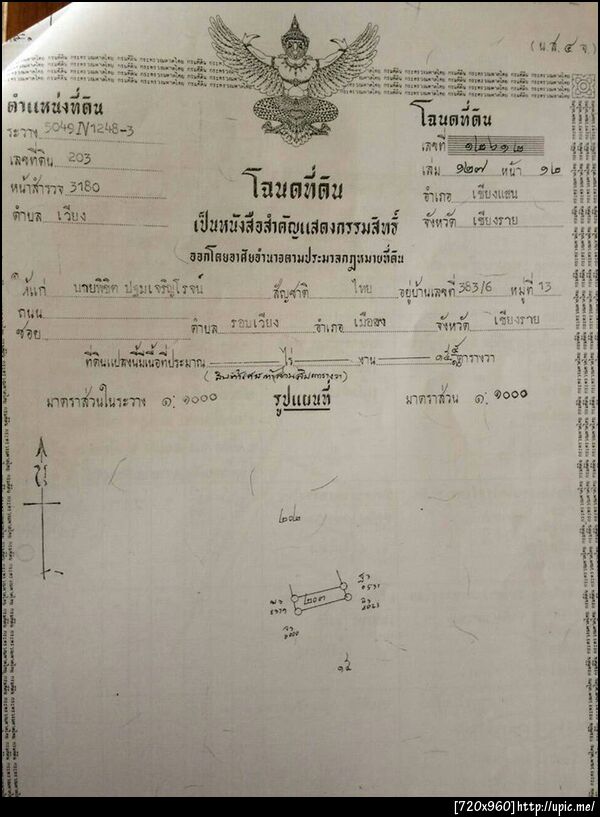 (น.ส. ๔ จ.)
ตำแหน่งที่ดิน
ระวาง 5049 IV 1248-3
เลขที่ดิน 203
หน้าสำรวจ 3180
ตำบล เวียง
โฉนดที่ดิน
เลขที่ ๑๒๖๑๒
เล่ม ๑๒๗ หน้า ๑๒
อำเภอ เชียงแสน
จังหวัด เชียงราย
โฉนดที่ดิน
เป็นหนังสือสำคัญแสดงกรรมสิทธิ์
ออกโดยอาศัยอำนาจตามประมวลกฎหมายที่ดิน
ให้แก่ นายพิชิต ปฐมเจริญโรจน์ สัญชาติ ไทย อยู่บ้านเลขที่ 383/6 หมู่ที่ 13
ถนน
ซอย ตำบล รอบเวียง อำเภอ เมือง จังหวัด เชียงราย
ที่ดินแปลงนี้มีเนื้อที่ประมาณ ไร่ งาน ตารางวา
มาตราส่วนในระวาง ๑:๑๐๐๐ รูปแผนที่ มาตราส่วน ๑:๑๐๐๐
๒๐๒
๒๐๓
[720x960]http://upic.me/